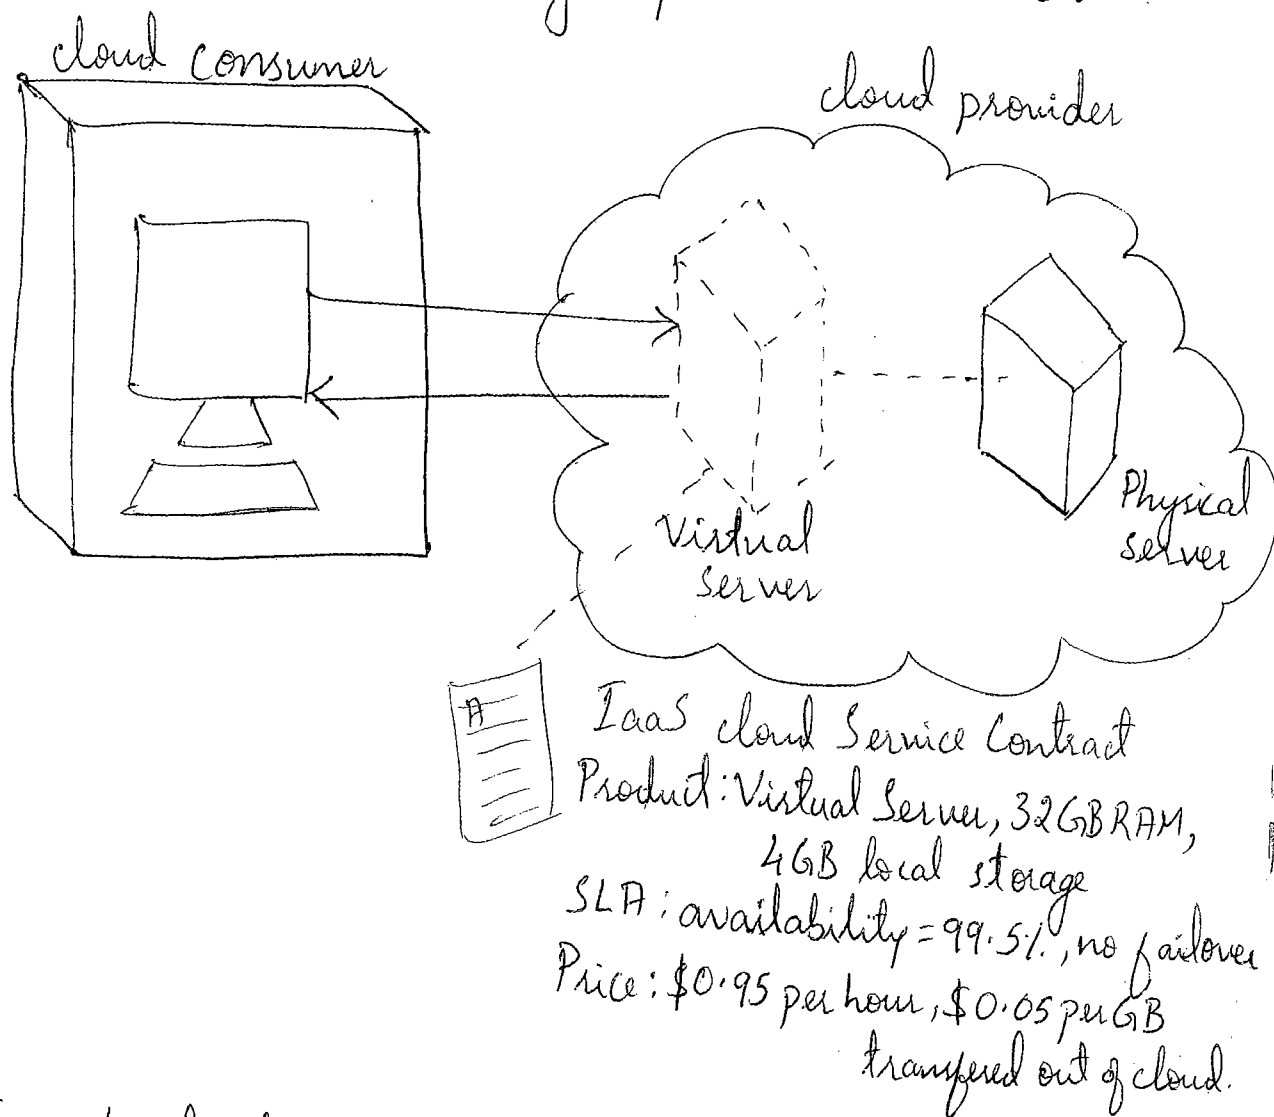 cloud consumer
cloud provider
Virtual
server
Physical
server
A
IaaS cloud Service Contract
Product: Virtual Server, 32GB RAM,
4GB local storage
SLA: availability = 99.5%, no failover
Price: $0.95 per hour, $0.05 per GB
transfered out of cloud.